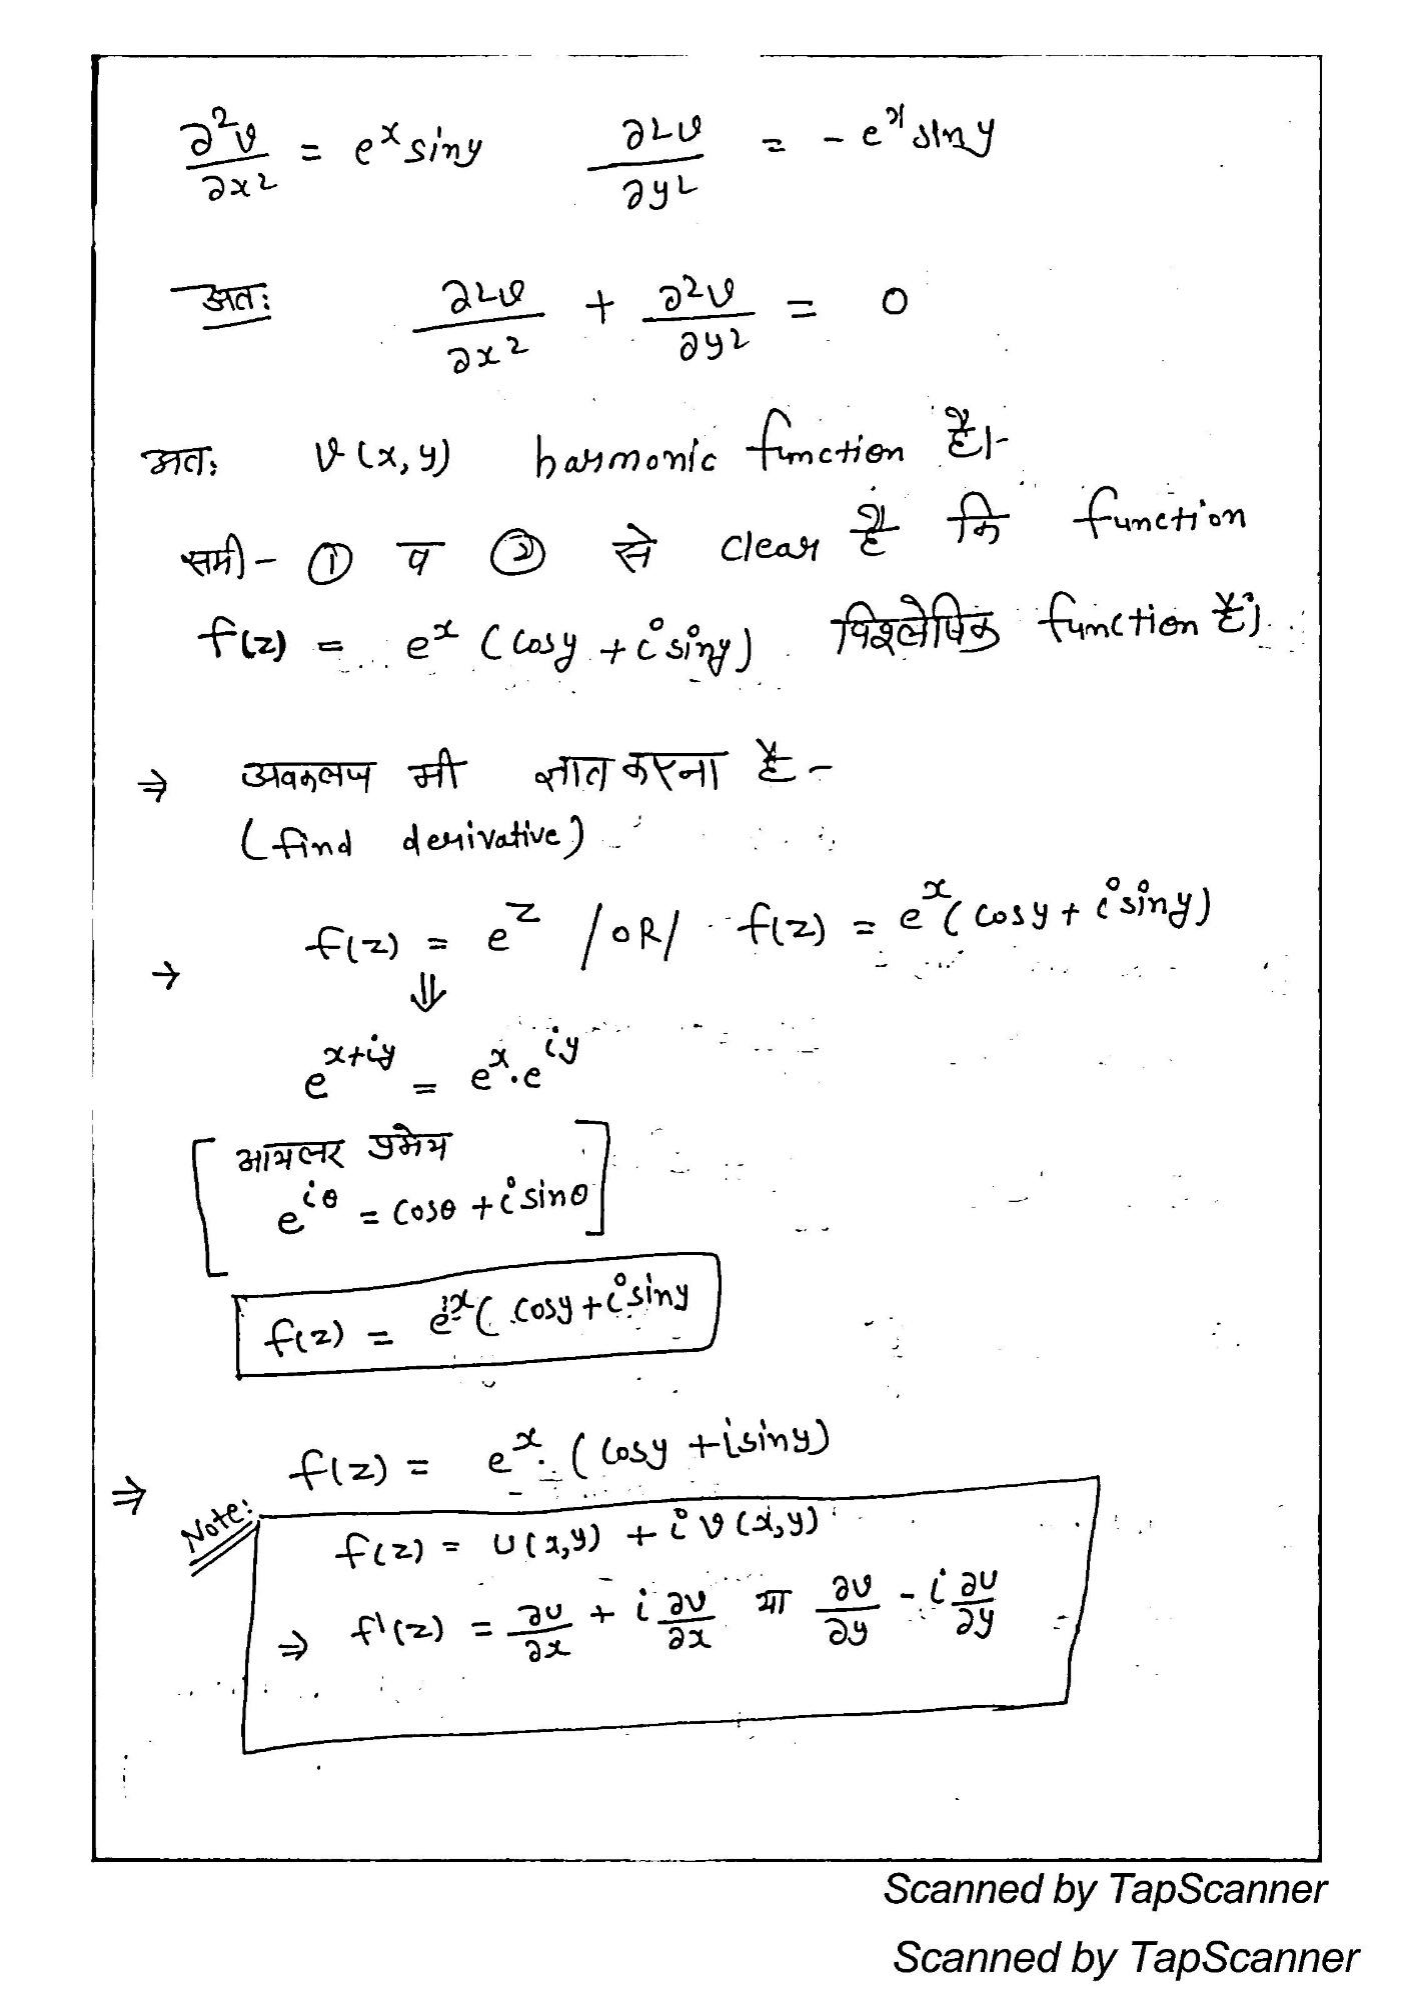 ∂²v/∂x² = eˣ siny ∂²v/∂y² = - eˣ siny
अतः ∂²v/∂x² + ∂²v/∂y² = 0
अतः v(x,y) harmonic function है।-
समी- ① व ② से clear है कि function
f(z) = eˣ (cosy + i siny) विश्लेषिक function है।
⇒ अवकलज भी ज्ञात करना है -
(find derivative)
→ f(z) = e^z /OR/ f(z) = eˣ (cosy + i siny)
⇓
e^(x+iy) = eˣ.e^(iy)
[आयलर प्रमेय
e^(iθ) = cosθ + i sinθ]
f(z) = eˣ (cosy + i siny
⇒ f(z) = eˣ. (cosy + i siny)
Note: f(z) = u(x,y) + i v(x,y)
⇒ f'(z) = ∂u/∂x + i ∂v/∂x या ∂v/∂y - i ∂u/∂y
Scanned by TapScanner
Scanned by TapScanner